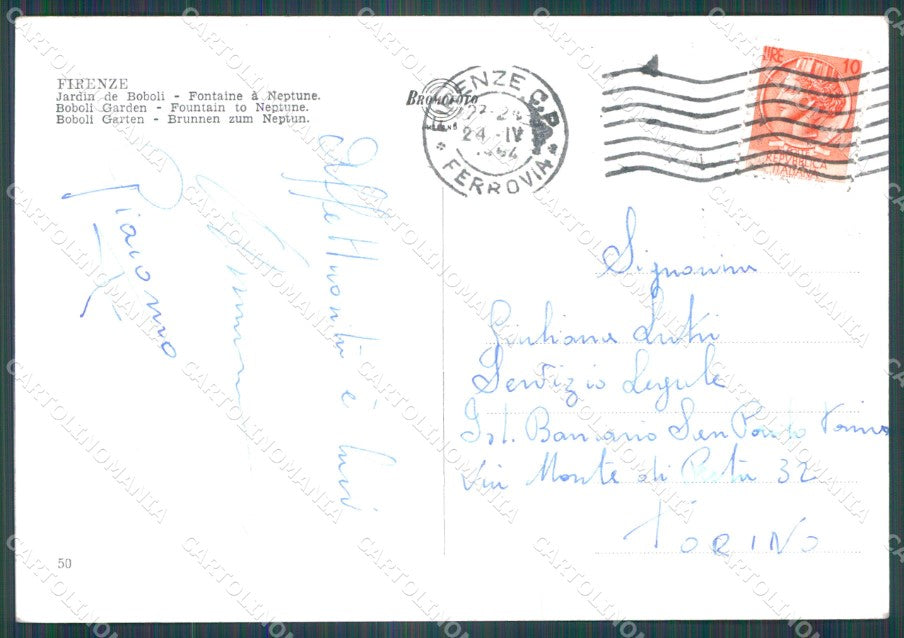 FIRENZE
Jardin de Boboli - Fontaine à Neptune.
Boboli Garden - Fountain to Neptune.
Boboli Garten - Brunnen zum Neptun.
BROMOFOTO
MILANO
FIRENZE C.P.
24 - IV
FERROVIA
LIRE 10
REPVBBLICA
ITALIANA
Affettuosità e
Signorina
Giuliana
Servizio Legale
Ist. Bancario San Paolo Torino
Via Monte di Pietà 32
TORINO
50
CARTOLINOMANIA